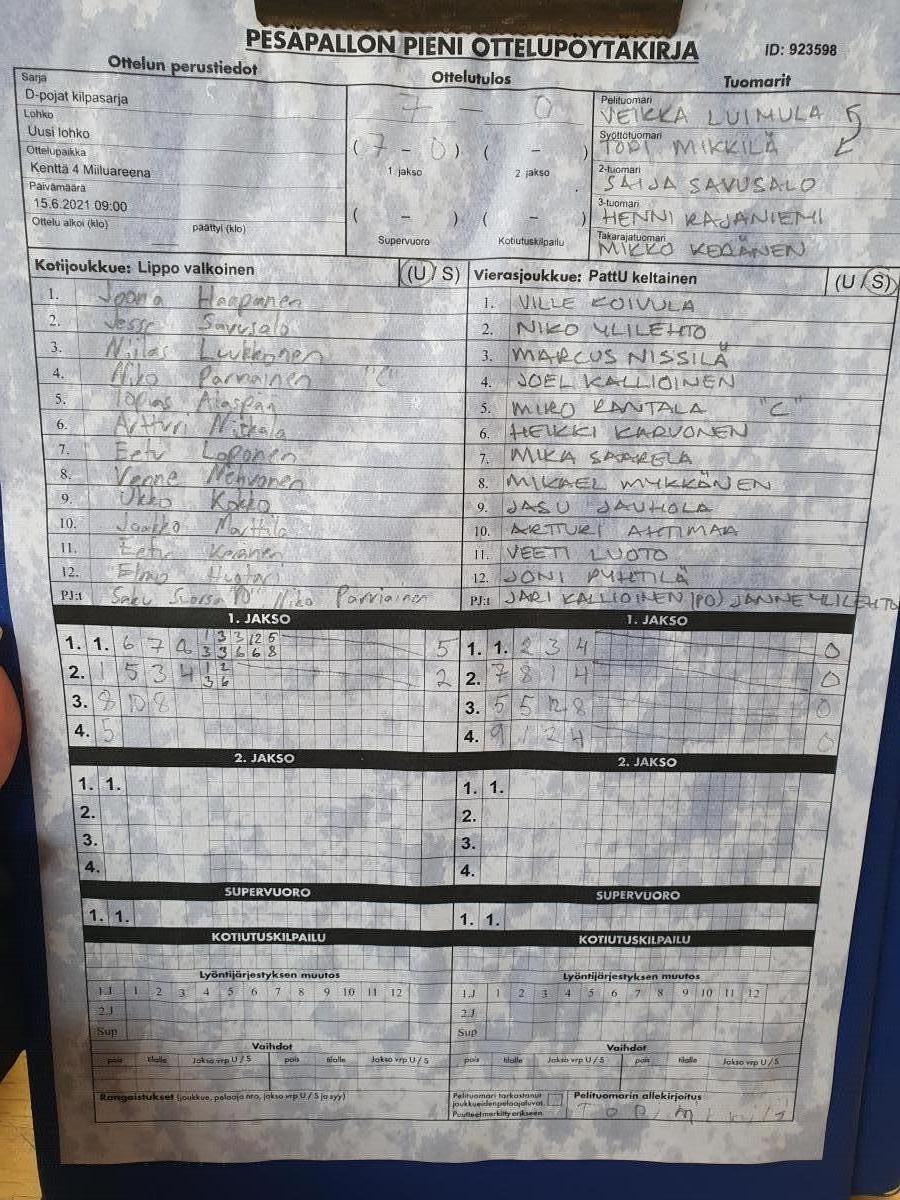 PESÄPALLON PIENI OTTELUPÖYTÄKIRJA
ID: 923598
Ottelun perustiedot
Sarja
D-pojat kilpasarja
Lohko
Uusi lohko
Ottelupaikka
Kenttä 4 Miiluareena
Päivämäärä
15.6.2021 09:00
Ottelu alkoi (klo) päättyi (klo)
Ottelutulos
7 – 0
( 7 – 0 ) ( – )
1 jakso 2 jakso
( – ) ( – )
Supervuoro Kotiutuskilpailu
Tuomarit
Pelituomari
VEIKKA LUIMULA
Syöttötuomari
TOPI MIKKILÄ
2-tuomari
SAIJA SAVUSALO
3-tuomari
HENNI RAJANIEMI
Takarajatuomari
MIKKO KERÄNEN
Kotijoukkue: Lippo valkoinen (U / S)
1. Joona Haapanen
2. Jesse Savusalo
3. Niilas Luukkonen
4. Niko Parviainen "C"
5. Topias Alaspää
6. Artturi Niskala
7. Eetu Loponen
8. Venne
9. Ukko Kokko
10. Jaakko Marttila
11. Eetu
12. Elmo
PJ:t Saku Suorsa "PO" Niko Parviainen
Vierasjoukkue: PattU keltainen (U / S)
1. VILLE KOIVULA
2. NIKO YLILEHTO
3. MARCUS NISSILÄ
4. JOEL KALLIOINEN
5. MIRO RANTALA "C"
6. HEIKKI KARVONEN
7. MIKA SAARELA
8. MIKAEL MYKKÄNEN
9. JASU JAUHOLA
10. ARTTURI AHTIMAA
11. VEETI LUOTO
12. JONI PYHTILÄ
PJ:t JARI KALLIOINEN (PO) JANNE YLILEHTO
1. JAKSO
1. 1. 6 7 1 3 3 12 5 5
3 3 6 6 8
2. 1 5 3 4 1 2 2
3 6
3. 8 10 8
4. 5
1. JAKSO
1. 1. 2 3 4 0
2. 7 8 1 4 0
3. 5 5 12 8 0
4. 9 1 2 4 0
2. JAKSO
1. 1.
2.
3.
4.
2. JAKSO
1. 1.
2.
3.
4.
SUPERVUORO
1. 1.
SUPERVUORO
1. 1.
KOTIUTUSKILPAILU
Lyöntijärjestyksen muutos
1.J 1 2 3 4 5 6 7 8 9 10 11 12
2.J
Sup
Vaihdot
pois tilalle Jakso vrp U / S pois tilalle Jakso vrp U / S
KOTIUTUSKILPAILU
Lyöntijärjestyksen muutos
1.J 1 2 3 4 5 6 7 8 9 10 11 12
2.J
Sup
Vaihdot
pois tilalle Jakso vrp U / S pois tilalle Jakso vrp U / S
Rangaistukset (joukkue, pelaaja nro, jakso vrp U / S ja syy)
Pelituomari tarkastanut
joukkueidenpelaajaluvat.
Puutteet merkitty erikseen
Pelituomarin allekirjoitus